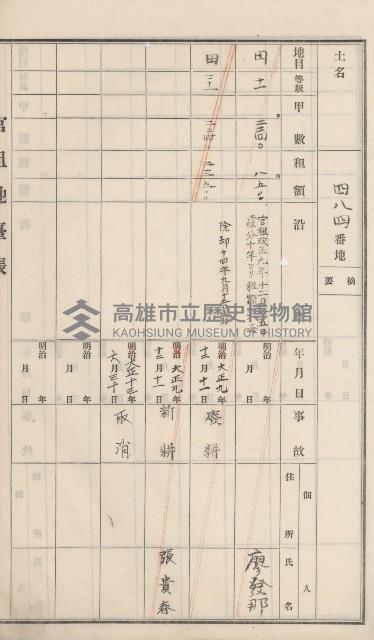 土名
四八四番地
摘要
地目 等級 甲數 租額 沿 年月日 事故 個人
住所 氏名
田 十一 二三四〇 八五〇
官租改正九年十二月
明治 年 月 日
廖發那
田
除却十四年九月
明治 大正九年十二月十一日
廢耕
明治 大正九年十二月十一日
新耕
張貴春
明治 大正十三年六月三十日
取消
明治 年 月 日
明治 年 月 日
官租地臺帳
高雄市立歷史博物館
KAOHSIUNG MUSEUM OF HISTORY